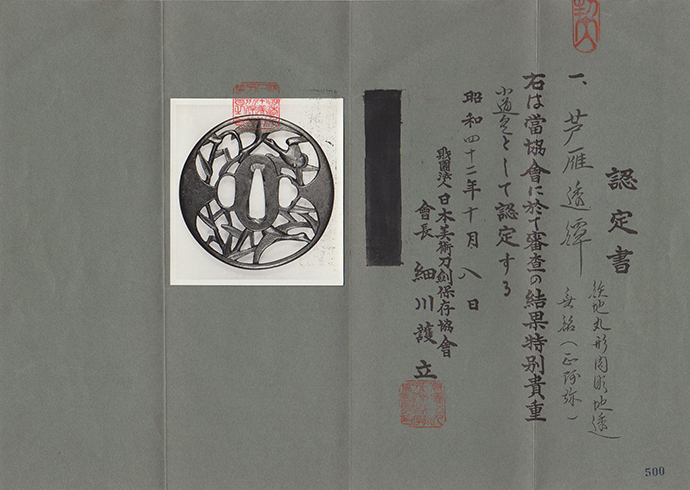 認定書
一、芦雁透鐔
鉄地丸形肉彫地透
無銘(正阿弥)
右は當協會に於て審査の結果特別貴重
小道具として認定する
昭和四十二年十月八日
財團法人日本美術刀剣保存協會
會長 細川護立
500